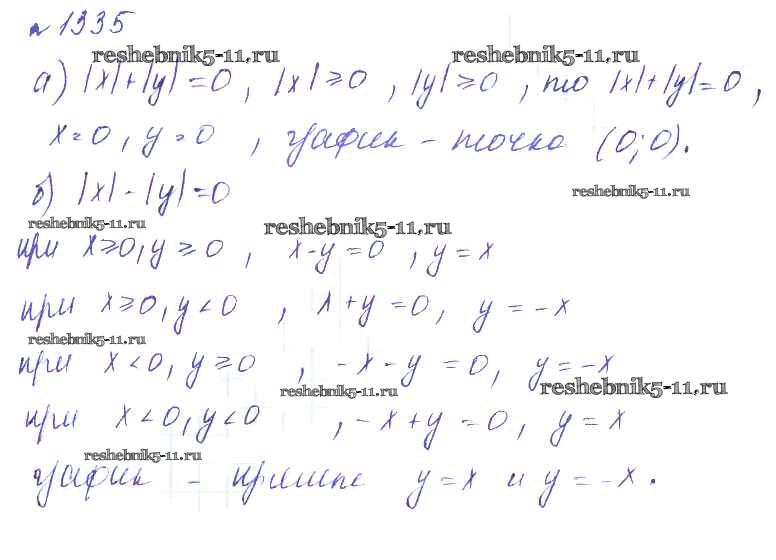 № 1335
reshebnik5-11.ru reshebnik5-11.ru
а) |x|+|y|=0, |x|≥0, |y|≥0, то |x|+|y|=0,
x=0, y=0, график – точка (0;0).
б) |x|-|y|=0 reshebnik5-11.ru
reshebnik5-11.ru reshebnik5-11.ru
при x≥0, y≥0, x-y=0, y=x
при x≥0, y<0, x+y=0, y=-x
reshebnik5-11.ru
при x<0, y≥0, -x-y=0, y=-x
reshebnik5-11.ru reshebnik5-11.ru
при x<0, y<0, -x+y=0, y=x
reshebnik5-11.ru
график – прямые y=x и y=-x.